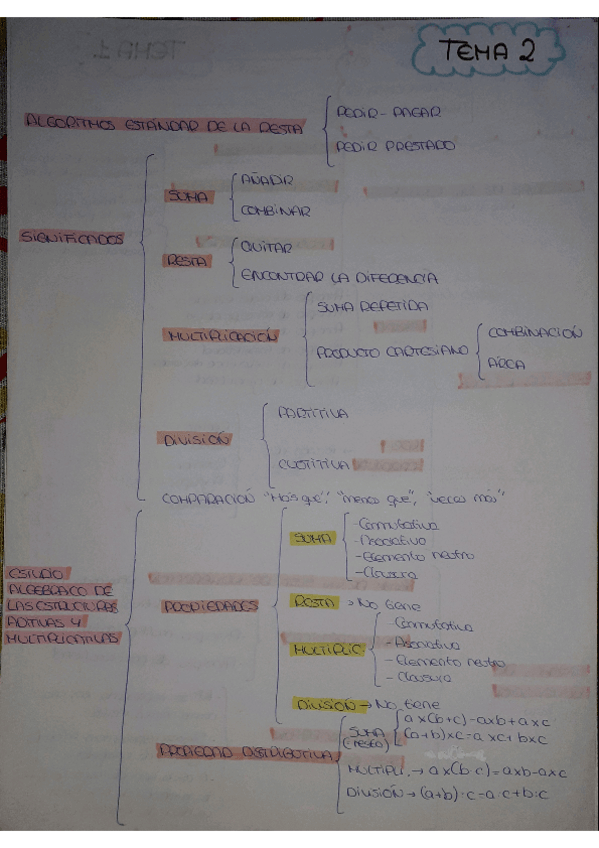 TEMA 2
ALGORITMOS ESTÁNDAR DE LA RESTA
PEDIR-PAGAR
PEDIR PRESTADO
SIGNIFICADOS
SUMA
AÑADIR
COMBINAR
RESTA
QUITAR
ENCONTRAR LA DIFERENCIA
MULTIPLICACIÓN
SUMA REPETIDA
PRODUCTO CARTESIANO
COMBINACIÓN
ÁREA
DIVISIÓN
PARTITIVA
CUOTITIVA
COMPARACIÓN "Más que", "menos que", "veces más"
ESTUDIO
ALGEBRAICO DE
LAS ESTRUCTURAS
ADITIVAS Y
MULTIPLICATIVAS
PROPIEDADES
SUMA
-Conmutativa
-Asociativa
-Elemento neutro
-Clausura
RESTA → No tiene
MULTIPLIC
-Conmutativa
-Asociativa
-Elemento neutro
-Clausura
DIVISIÓN → No tiene
PROPIEDAD DISTRIBUTIVA
SUMA
(resta)
a x(b+c)=axb+axc
(a+b)xc=axc+bxc
MULTIPLI. → ax(b-c)=axb-axc
DIVISIÓN → (a+b):c=a:c+b:c